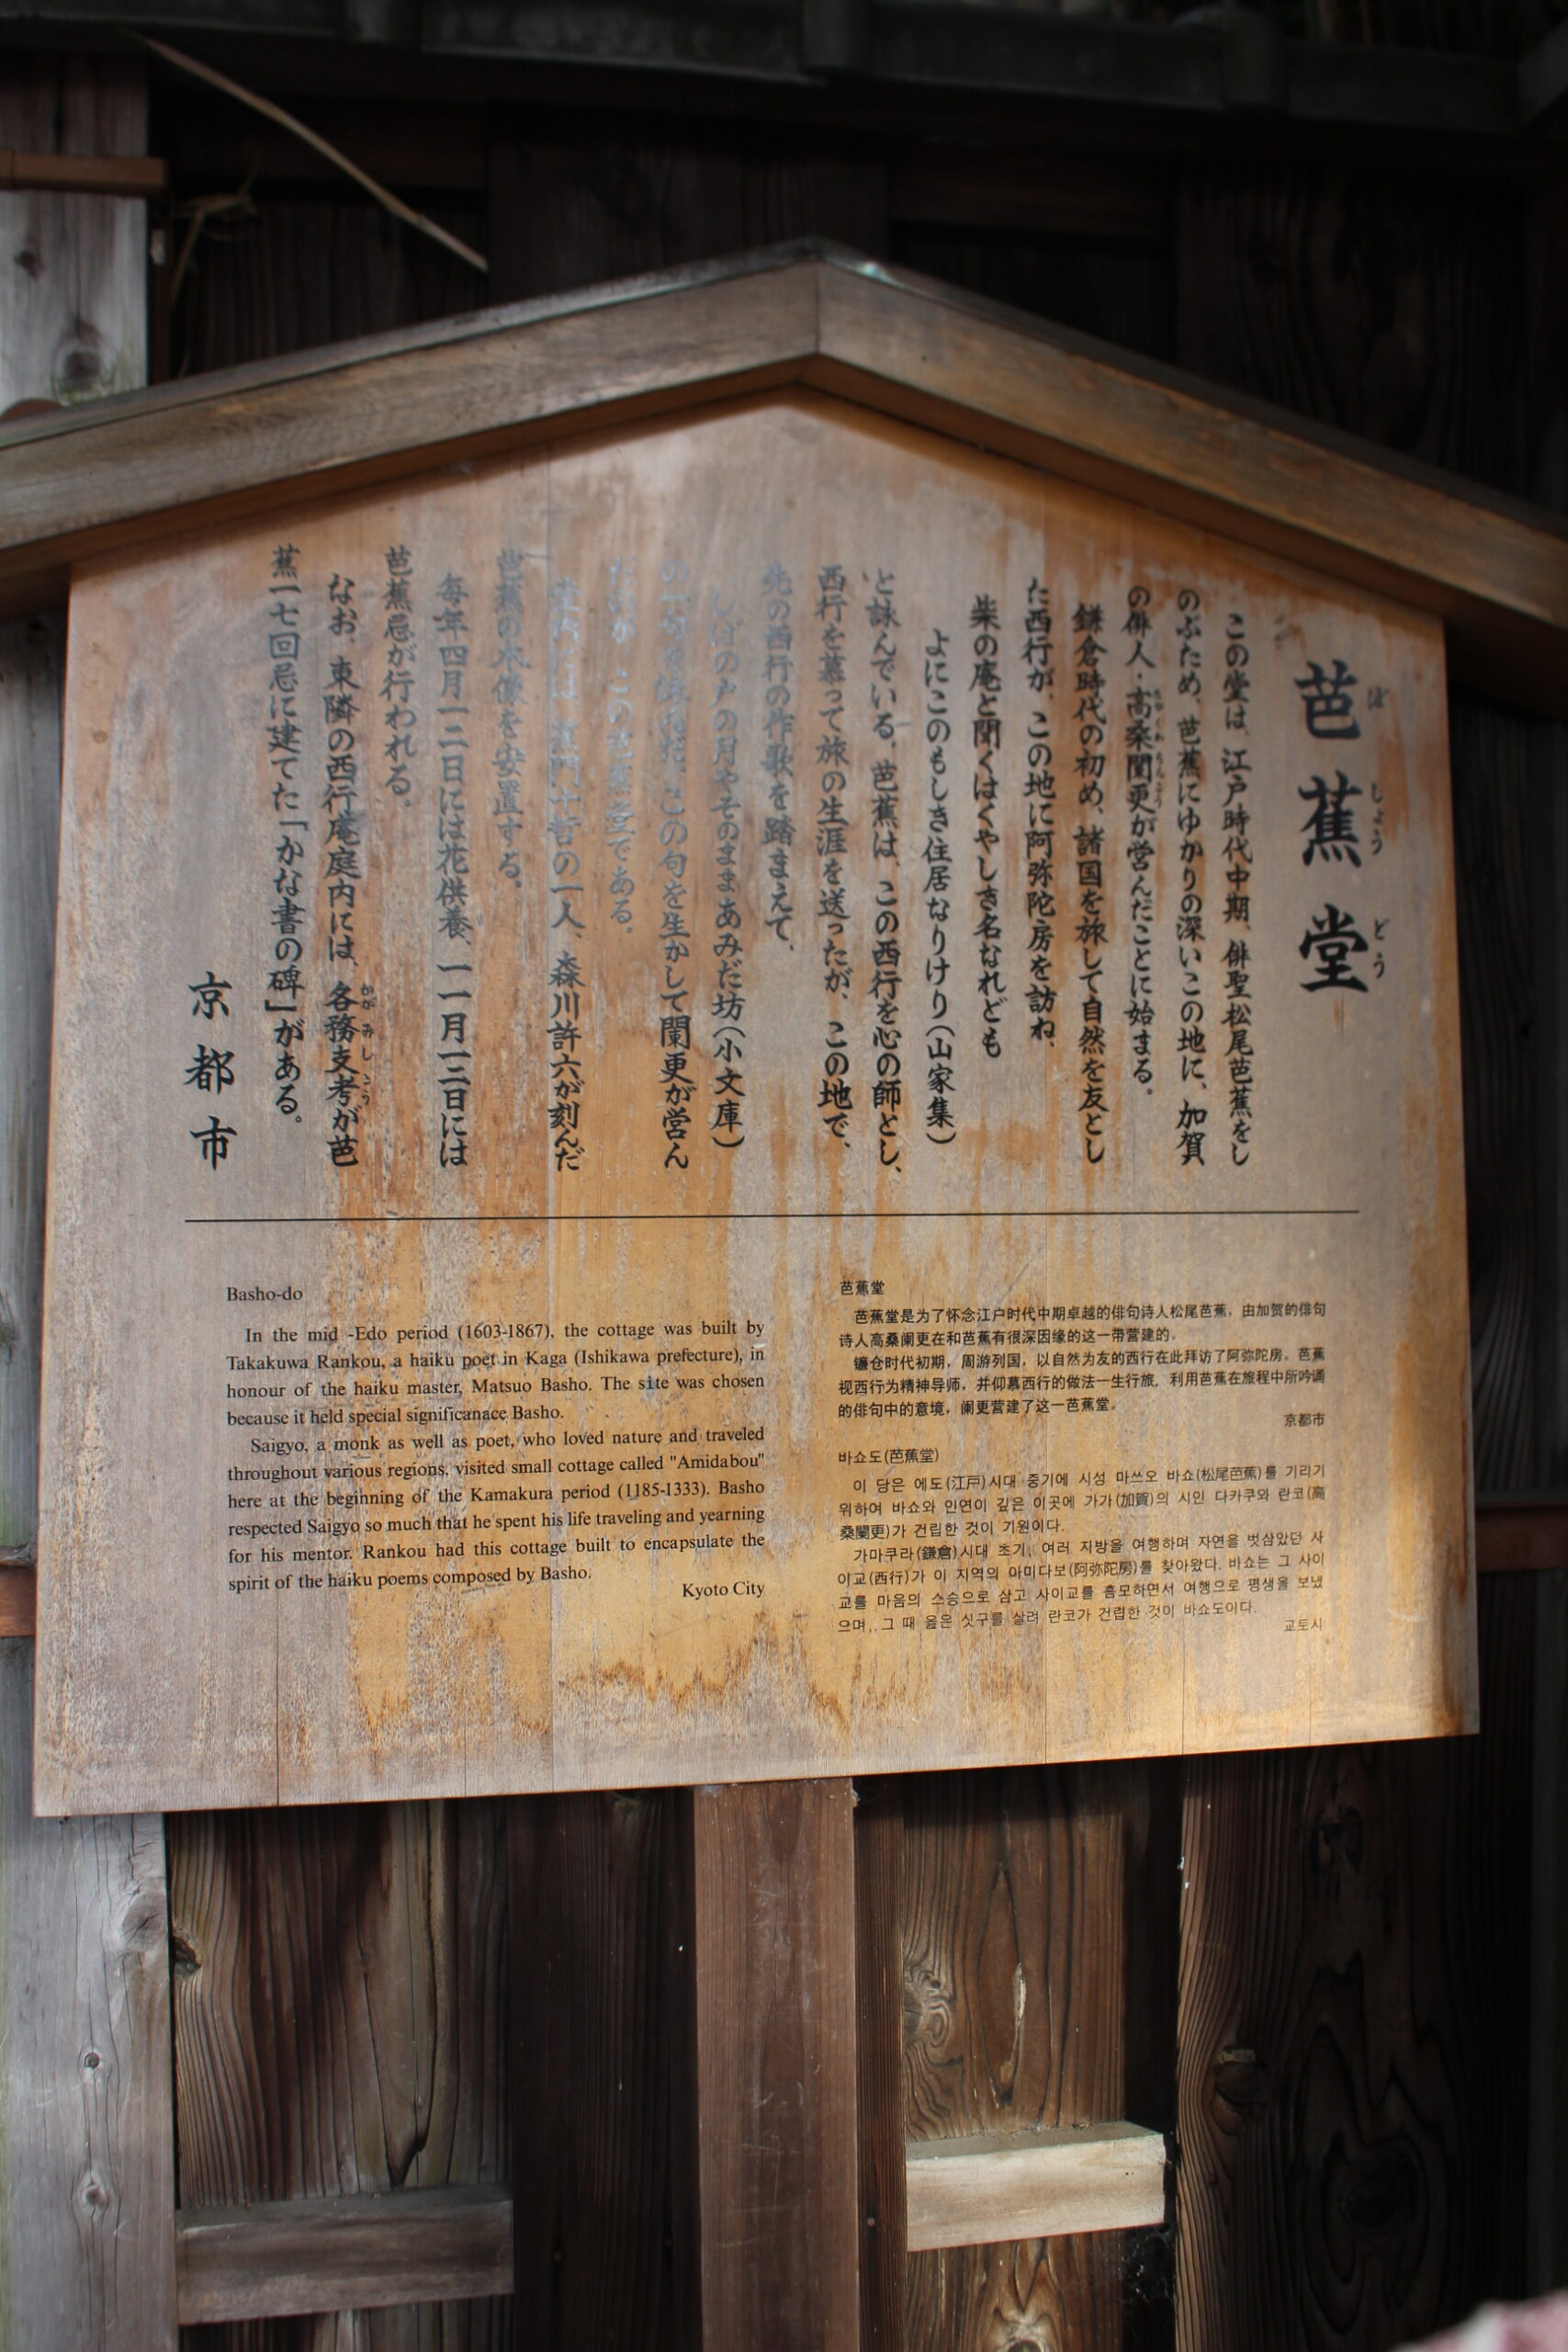 芭蕉堂
この堂は、江戸時代中期、俳聖松尾芭蕉をし
のぶため、芭蕉にゆかりの深いこの地に、加賀
の俳人・高桑闌更が営んだことに始まる。
鎌倉時代の初め、諸国を旅して自然を友とし
た西行が、この地に阿弥陀房を訪ね、
柴の庵と聞くはくやしき名なれども
よにこのもしき住居なりけり（山家集）
と詠んでいる。芭蕉は、この西行を心の師とし、
西行を慕って旅の生涯を送ったが、この地で、
先の西行の作歌を踏まえて、
しばの戸の月やそのままあみだ坊（小文庫）
の一句を この句を生かして闌更が営ん
だのが、この芭蕉堂である。
堂内には、蕉門十哲の一人、森川許六が刻んだ
芭蕉の木像を安置する。
毎年四月一二日には花供養、一一月一二日には
芭蕉忌が行われる。
なお、東隣の西行庵庭内には、各務支考が芭
蕉一七回忌に建てた「かな書の碑」がある。
京都市
Basho-do
In the mid -Edo period (1603-1867), the cottage was built by
Takakuwa Rankou, a haiku poet in Kaga (Ishikawa prefecture), in
honour of the haiku master, Matsuo Basho. The site was chosen
because it held special significanace Basho.
Saigyo, a monk as well as poet, who loved nature and traveled
throughout various regions, visited small cottage called "Amidabou"
here at the beginning of the Kamakura period (1185-1333). Basho
respected Saigyo so much that he spent his life traveling and yearning
for his mentor. Rankou had this cottage built to encapsulate the
spirit of the haiku poems composed by Basho.
Kyoto City
芭蕉堂
芭蕉堂是为了怀念江户时代中期卓越的俳句诗人松尾芭蕉，由加贺的俳句
诗人高桑阑更在和芭蕉有很深因缘的这一带营建的。
镰仓时代初期，周游列国，以自然为友的西行在此拜访了阿弥陀房。芭蕉
视西行为精神导师，并仰慕西行的做法一生行旅，利用芭蕉在旅程中所吟诵
的俳句中的意境，阑更营建了这一芭蕉堂。
京都市
바쇼도(芭蕉堂)
이 당은 에도(江戸)시대 중기에 시성 마쓰오 바쇼(松尾芭蕉)를 기리기
위하여 바쇼와 인연이 깊은 이곳에 가가(加賀)의 시인 다카쿠와 란코(高
桑闌更)가 건립한 것이 기원이다.
가마쿠라(鎌倉)시대 초기, 여러 지방을 여행하며 자연을 벗삼았던 사
이교(西行)가 이 지역의 아미다보(阿弥陀房)를 찾아왔다. 바쇼는 그 사이
교를 마음의 스승으로 삼고 사이교를 흠모하면서 여행으로 평생을 보냈
으며, 그 때 읊은 싯구를 살려 란코가 건립한 것이 바쇼도이다.
교토시